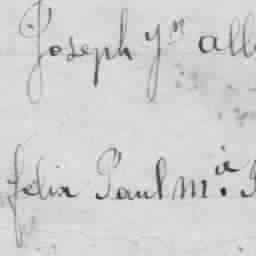 Joseph Yn alb
felix Paul M.a